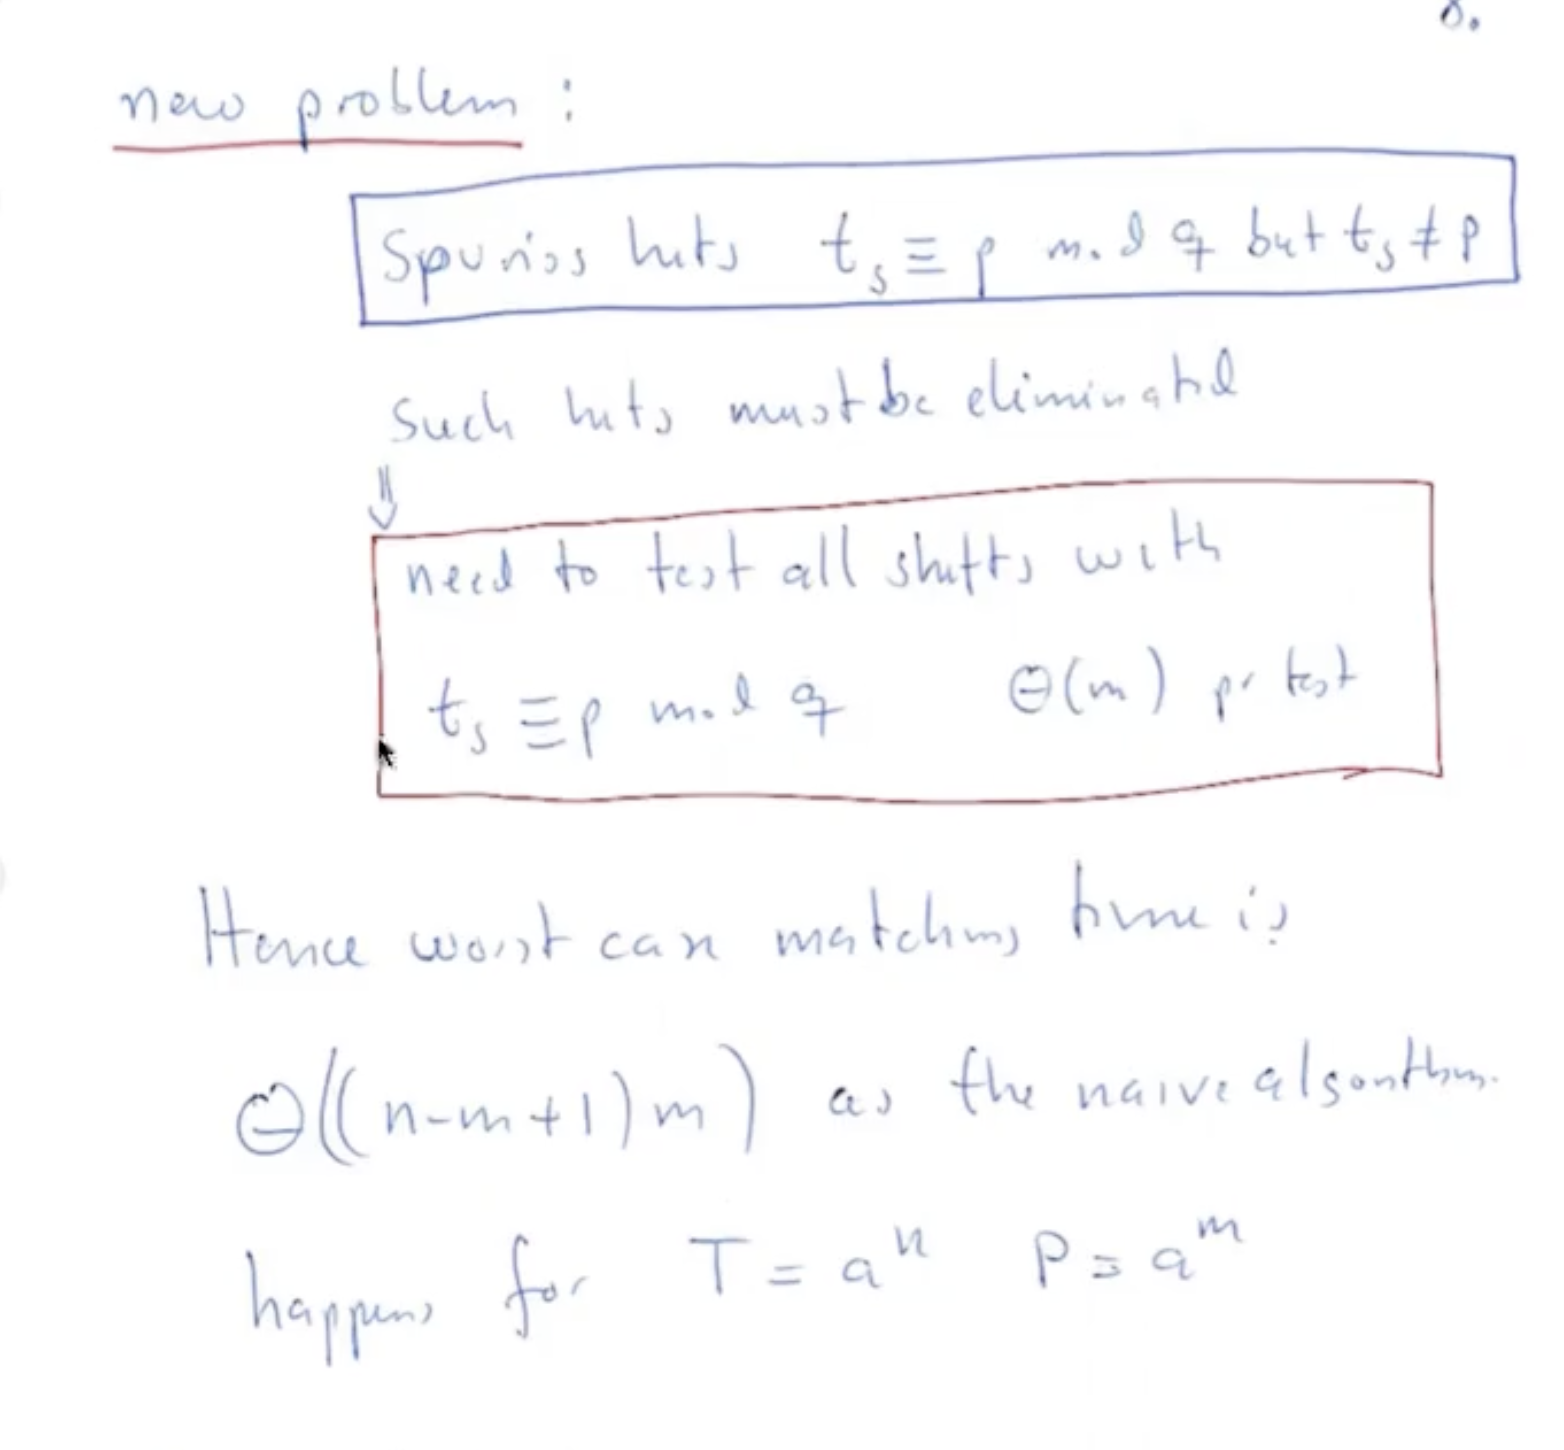 8.
new problem :
Spurios hits t_s ≡ p mod q but t_s ≠ p
Such hits must be eliminated
⇓
need to test all shifts with
t_s ≡ p mod q Θ(m) pr test
Hence worst case matching time is
Θ((n-m+1)m) as the naive algorithm.
happens for T = a^n P = a^m